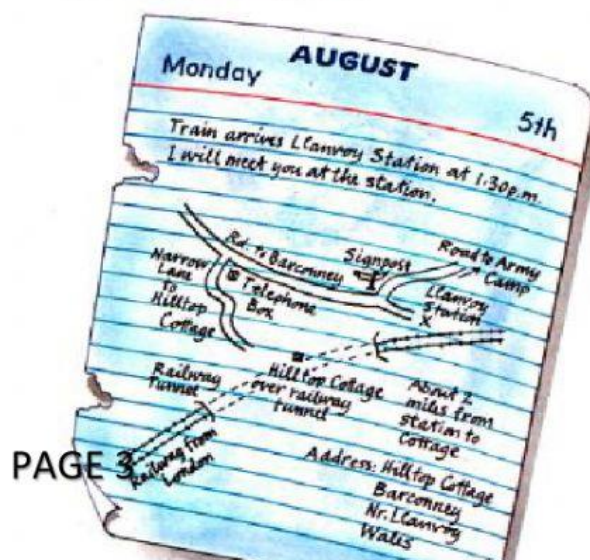 AUGUST
Monday
5th
Train arrives Llanvroy Station at 1.30p.m.
I will meet you at the station.
Rd. to Barconney
Signpost
Road to Army
Camp
Narrow
Lane
to
Hilltop
Cottage
Telephone
Box
Llanvroy
Station
X
Railway
tunnel
Hilltop Cottage
over railway
tunnel
About 2
miles from
station to
Cottage
Railway from
London
Address: Hilltop Cottage
Barconney
Nr. Llanvroy
Wales
PAGE 3